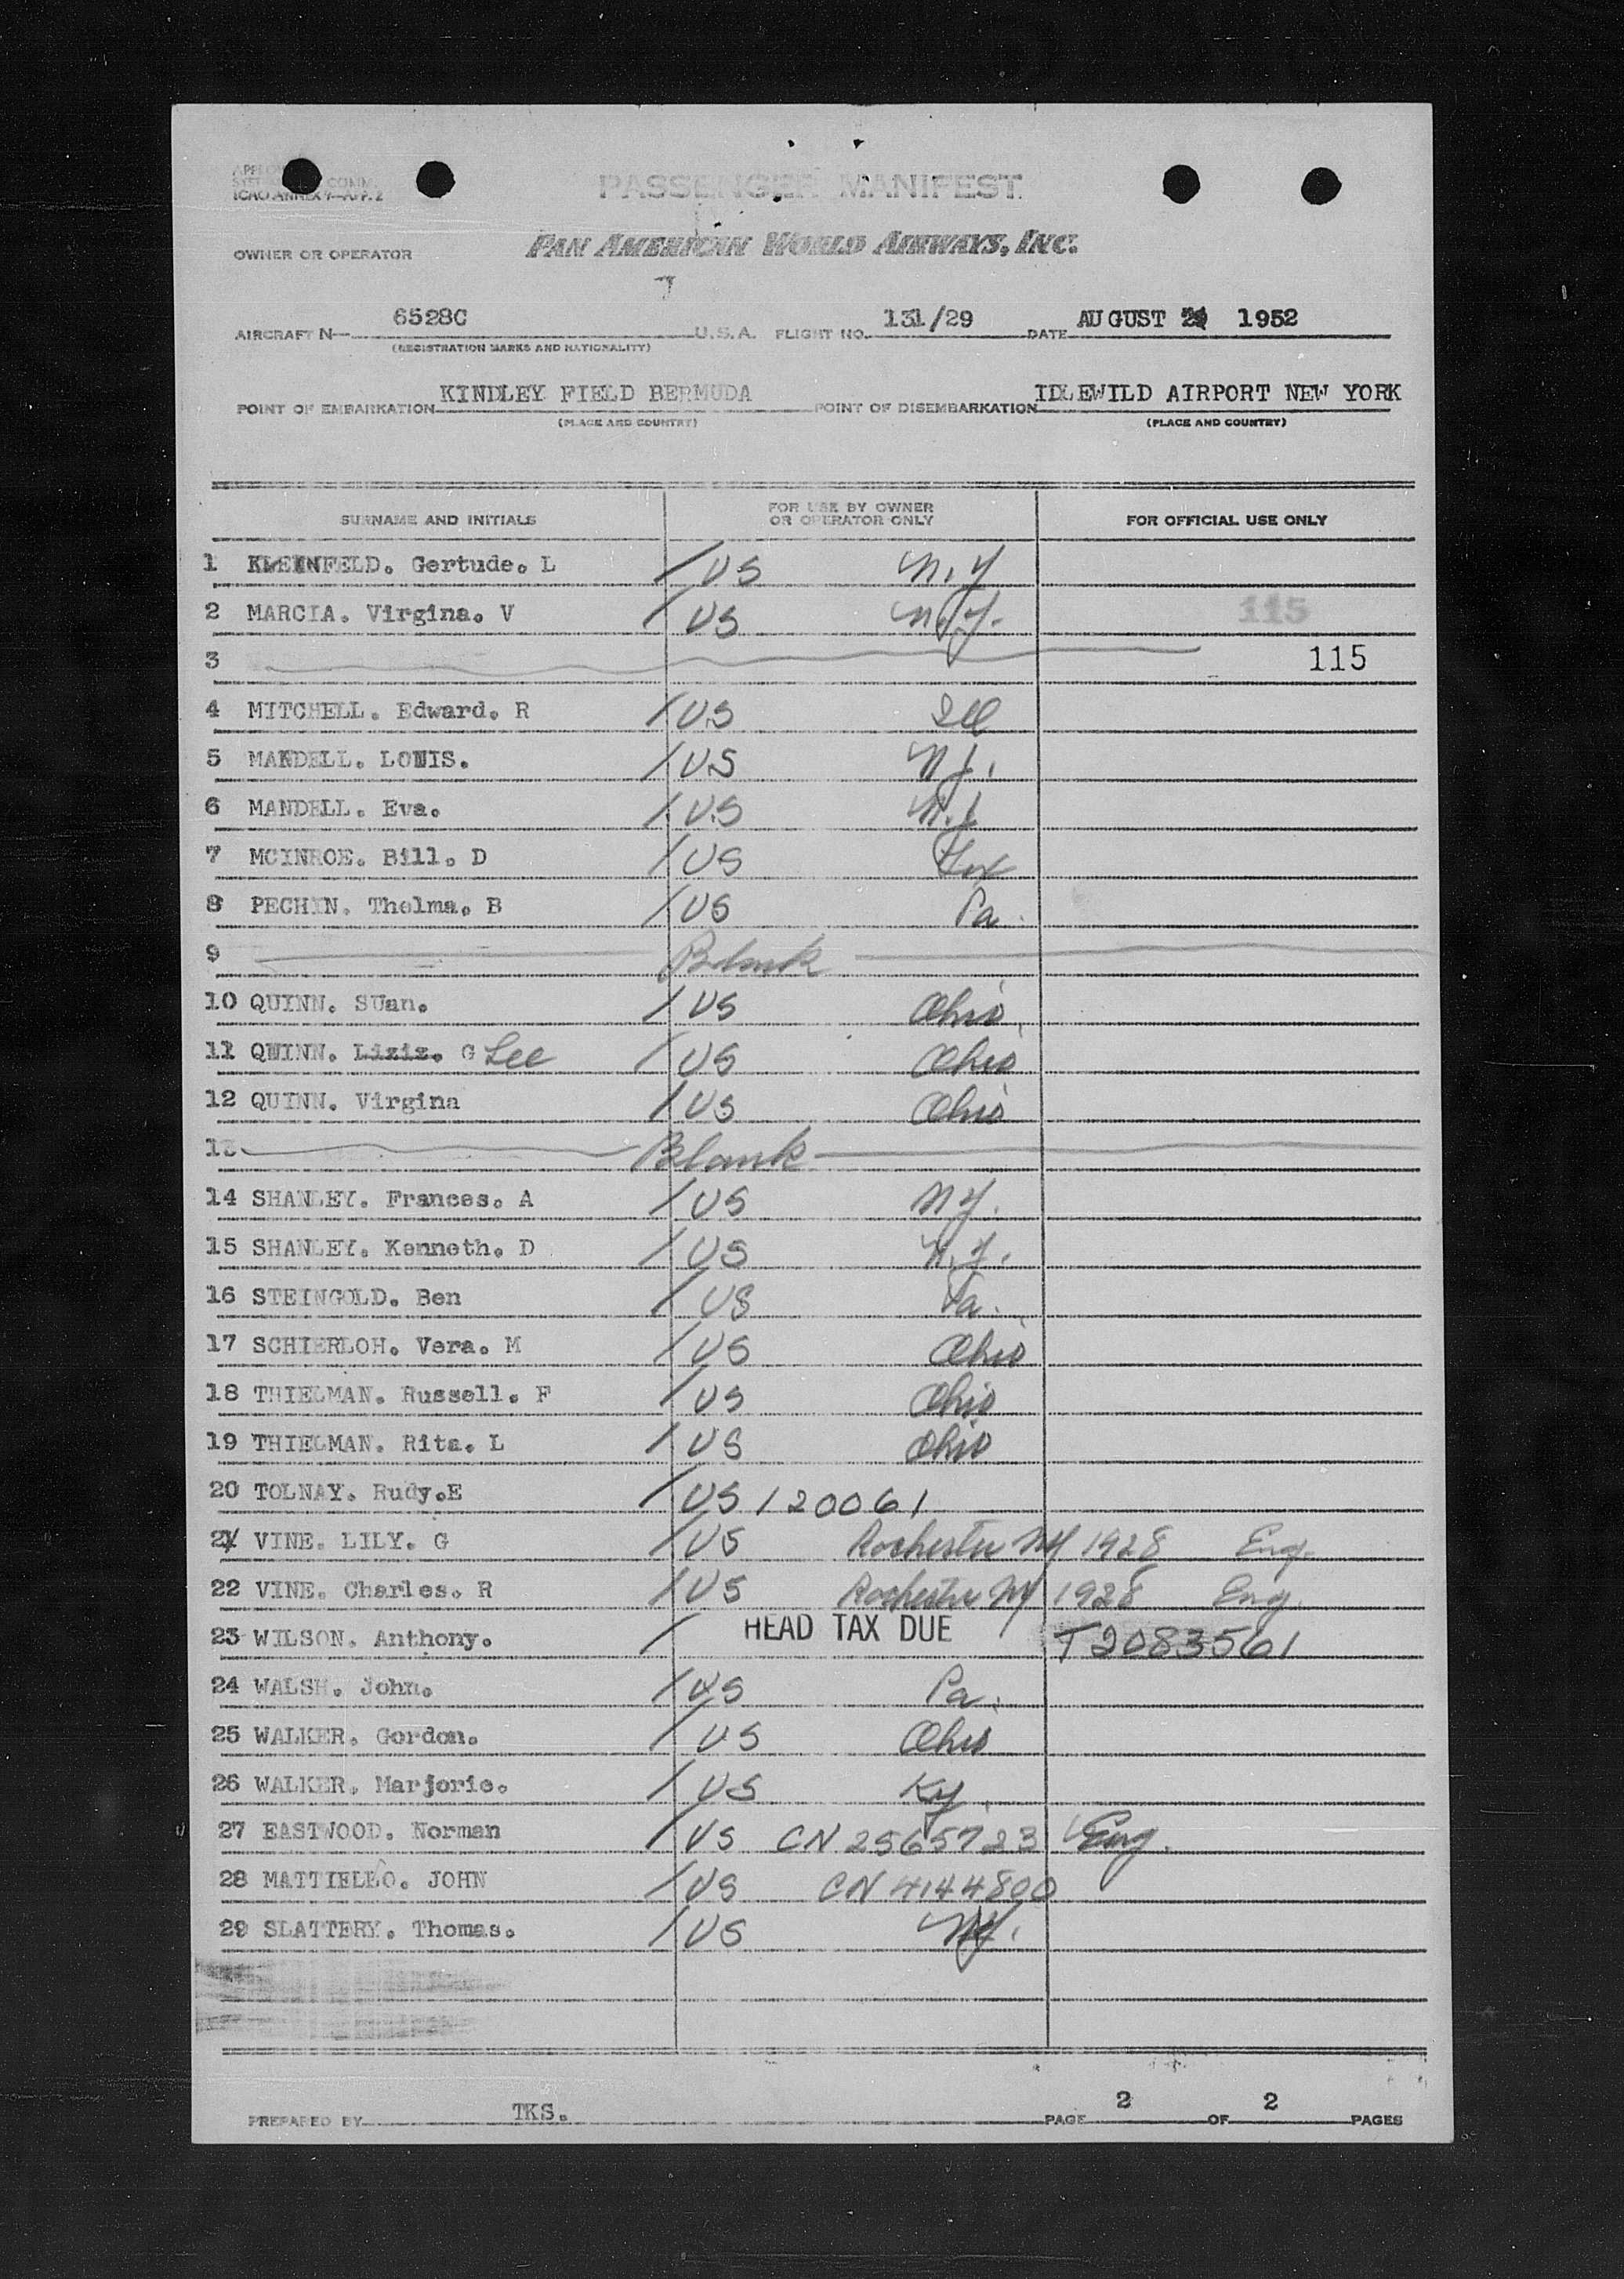 PASSENGER MANIFEST
ICAO ANNEX 9—APP. 2
OWNER OR OPERATOR PAN AMERICAN WORLD AIRWAYS, INC.
AIRCRAFT N— 6528C U.S.A. FLIGHT NO. 131/29 DATE AUGUST 29 1952
(REGISTRATION MARKS AND NATIONALITY)
POINT OF EMBARKATION KINDLEY FIELD BERMUDA POINT OF DISEMBARKATION IDLEWILD AIRPORT NEW YORK
(PLACE AND COUNTRY) (PLACE AND COUNTRY)
SURNAME AND INITIALS FOR USE BY OWNER OR OPERATOR ONLY FOR OFFICIAL USE ONLY
1 KLEINFELD. Gertude. L / US N.Y
2 MARCIA. Virgina. V / US N.Y. 115
3 115
4 MITCHELL. Edward. R / US Ill
5 MANDELL. LOUIS. / US N.J.
6 MANDELL. Eva. / US N.J
7 MCINROE. Bill. D / US Tex
8 PECHIN. Thelma. B / US Pa.
9 Blank
10 QUINN. SUan. / US Ohio
11 QUINN. Liziz. G Lee / US Ohio
12 QUINN. Virgina / US Ohio
13 Blank
14 SHANLEY. Frances. A / US NY.
15 SHANLEY. Kenneth. D / US N.Y.
16 STEINGOLD. Ben / US Pa.
17 SCHIERLOH. Vera. M / US Ohio
18 THIELMAN. Russell. F / US Ohio
19 THIELMAN. Rita. L / US Ohio
20 TOLNAY. Rudy.E / US 120061
21 VINE. LILY. G / US Rochester NY 1928 Eng.
22 VINE. Charles. R / US Rochester NY 1928 Eng.
23 WILSON. Anthony. / HEAD TAX DUE T2083561
24 WALSH. John. / US Pa.
25 WALKER. Gordon. / US Ohio
26 WALKER. Marjorie. / US Ky.
27 EASTWOOD. Norman / US CN 2565723 Eng.
28 MATTIELLO. JOHN / US CN 4144800
29 SLATTERY. Thomas. / US NY.
PREPARED BY TKS. PAGE 2 OF 2 PAGES